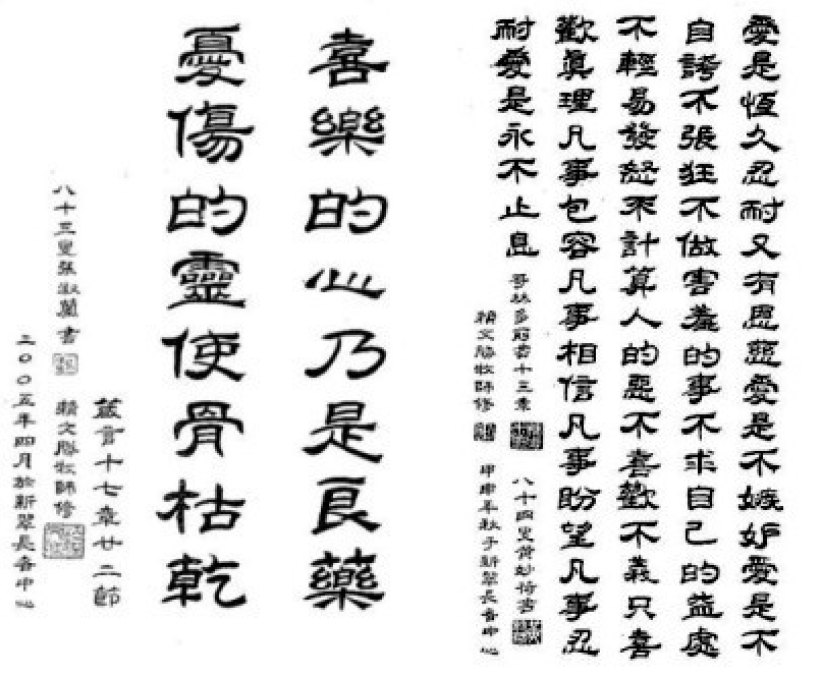 愛是恆久忍耐又有恩慈愛是不嫉妒愛是不
自誇不張狂不做害羞的事不求自己的益處
不輕易發怒不計算人的惡不喜歡不義只喜
歡眞理凡事包容凡事相信凡事盼望凡事忍
耐愛是永不止息
哥林多前書十三章 八十四叟黃妙書
賴文牧師修 甲申年秋于新翠長青中心
喜樂的心乃是良藥
憂傷的靈使骨枯乾
箴言十七章廿二節
八十三叟張淑蘭書 賴文牧師修
二〇〇五年四月於新翠長青中心